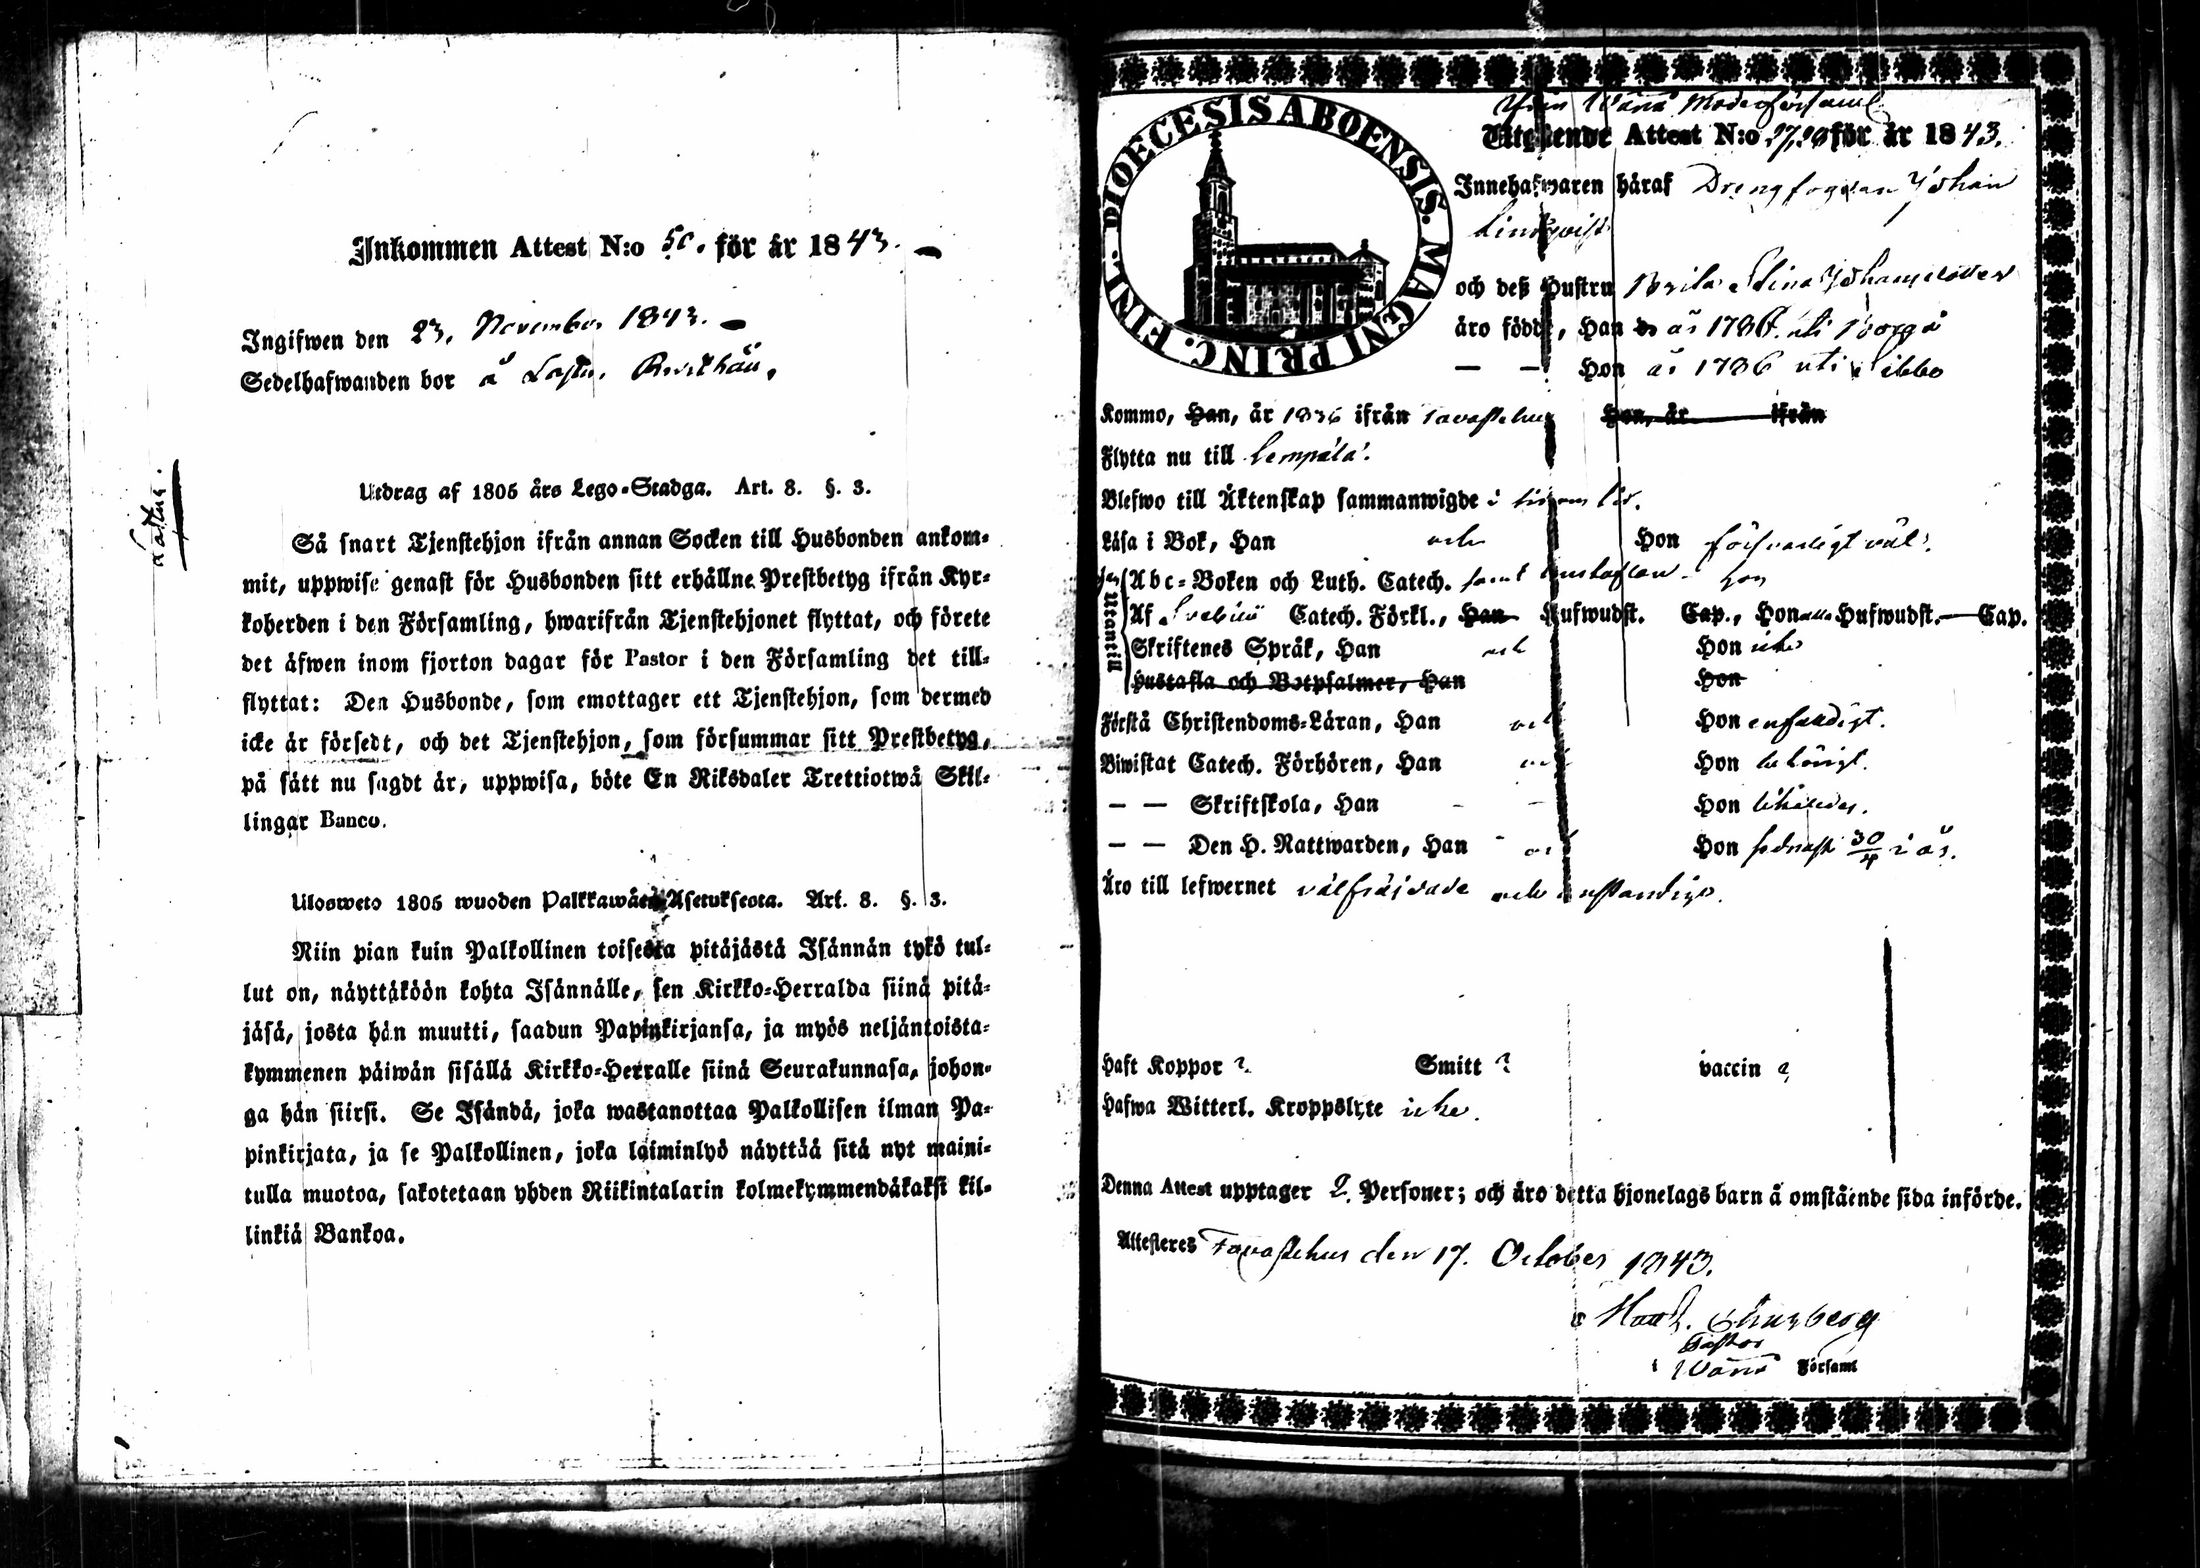 Inkommen Attest N:o 50. för år 1843.
Ingifwen den 23. November 1843.
Sedelhafwanden bor å
Lastu.
Utdrag af 1805 års Lego-Stadga. Art. 8. §. 3.
Så snart Tjenstehjon ifrån annan Socken till Husbonden ankom-
mit, uppwise genast för Husbonden sitt erhållne Prestbetyg ifrån Kyr-
koherden i den Församling, hwarifrån Tjenstehjonet flyttat, och förete
det äfwen inom fjorton dagar för Pastor i den Församling det till-
flyttat: Den Husbonde, som emottager ett Tjenstehjon, som dermed
icke är försedt, och det Tjenstehjon, som försummar sitt Prestbetyg,
på sätt nu sagdt är, uppwisa, böte En Riksdaler Trettiotwå Skil-
lingar Banco.
Ulosweto 1805 wuoden Palkkawäen Asetuksesta. Art. 8. §. 3.
Niin pian kuin Palkollinen toisesta pitäjästä Isännän tykö tul-
lut on, näyttäköön kohta Isännälle, sen Kirkko-Herralda siinä pitä-
jäsä, josta hän muutti, saadun Papinkirjansa, ja myös neljäntoista-
kymmenen päiwän sisällä Kirkko-Herralle siinä Seurakunnasa, johon-
ga hän siirsi. Se Isändä, joka wastanottaa Palkollisen ilman Pa-
pinkirjata, ja se Palkollinen, joka laiminlyö näyttää sitä nyt maini-
tulla muotoa, sakotetaan yhden Riikintalarin kolmekymmendäkaksi kil-
linkiä Bankoa.
DIOECESIS ABOENSIS. MAGNI PRINC. FINL.
Från Wånå Moderförsaml
Utgående Attest N:o för år 1843.
Innehafwaren häraf Drengfogden Johan
Lindqvist
och deß Hustru Brita Stina Johansdotter
äro födde, Han år 1786. uti Borgå
— — Hon år 1786 uti Sibbo
Kommo, Han, år 1836 ifrån Tavastehus Hon, år ifrån
Flytta nu till Lempälä.
Blefwo till Äktenskap sammanwigde i
Läsa i Bok, Han och Hon försvarligt väl.
Utantill
Abc-Boken och Luth. Catech. samt hustaflan hon
Af Svebilii Catech. Förkl., Han Hufwudst. Cap., Hon Hufwudst. — Cap.
Skriftenes Språk, Han och Hon icke
Hustafla och Botpsalmer, Han Hon
Förstå Christendoms-Läran, Han och Hon enfaldigt.
Biwistat Catech. Förhören, Han och Hon behörigt.
— — Skriftskola, Han - - Hon likaledes.
— — Den H. Nattwarden, Han och Hon sednast 30/4 i år.
Äro till lefwernet välfräjdade och anständige.
Haft Koppor ? Smitt ? vaccin ?
Hafwa Witterl. Kroppslyte icke.
Denna Attest upptager 2. Personer; och äro detta hjonelags barn å omstående sida införde.
Attesteres Tavastehus den 17. October 1843.
Pastor
i Wånå Församl